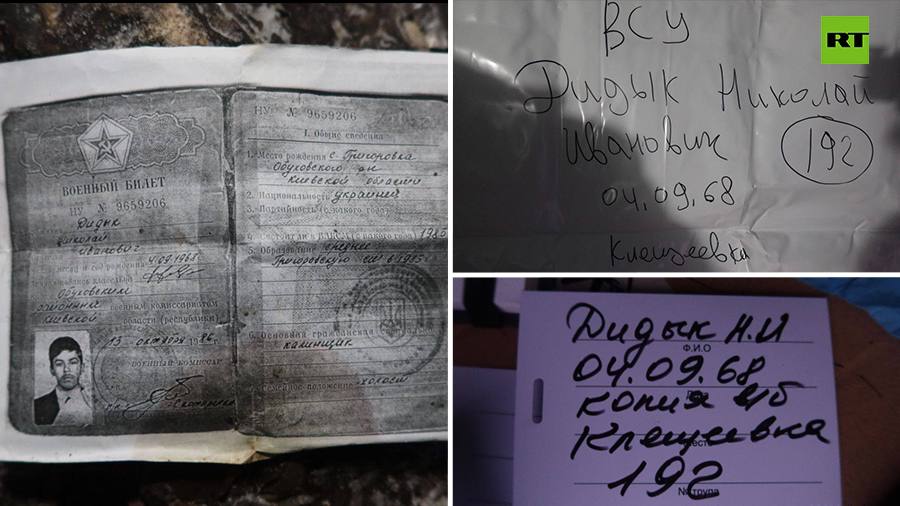 ВОЕННЫЙ БИЛЕТ
НУ № 9659206
Дидык
Николай
Иванович
4.09.1968
Обуховским
районным
военным комиссариатом
Киевской области (республики)
13 октября
Военный комиссар
НУ № 9659206
I. Общие сведения
1. Место рождения с. Григоровка
Обуховского
Киевской области
2. Национальность украинец
3. Партийность (с какого года)
4. (с какого года) 1985
5. Образование
6. Основная гражданская
холост
RT
ВСУ
Дидык Николай
Иванович
192
04.09.68
Клещеевка
Дидык Н.И
Ф.И.О
04.09.68
копия в/б
Клещеевка
место
192
№ трупа